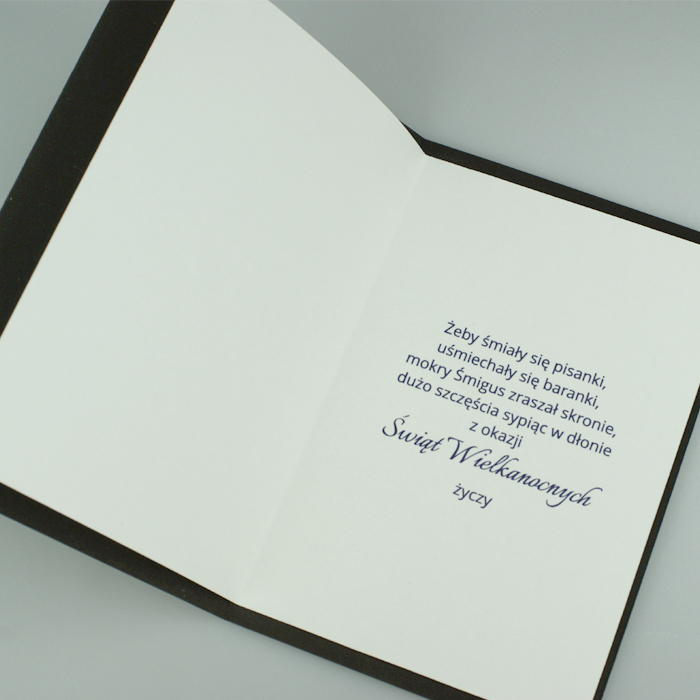 Żeby śmiały się pisanki,
uśmiechały się baranki,
mokry Śmigus zraszał skronie,
dużo szczęścia sypiąc w dłonie
z okazji
Świąt Wielkanocnych
życzy